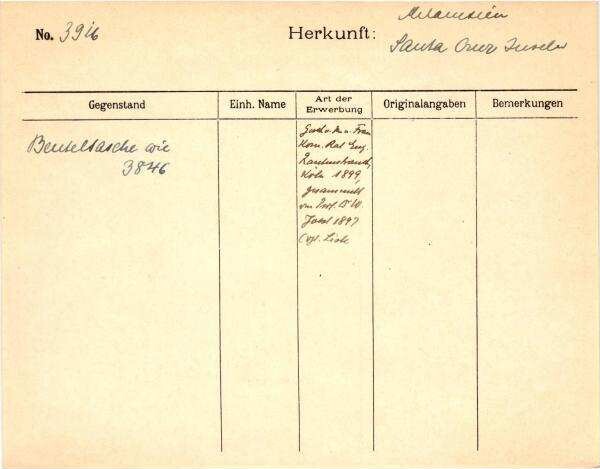 No. 3916
Herkunft:
Melanesien
Santa Cruz Inseln
Gegenstand
Einh. Name
Art der
Erwerbung
Originalangaben
Bemerkungen
Beuteltasche wie
3846
Gesch. v. Frau
Kom. Rat Eug.
Rautenstrauch,
Köln 1899,
gesammelt
von Prof. Dr W.
Joest 1897
(vgl. Liste